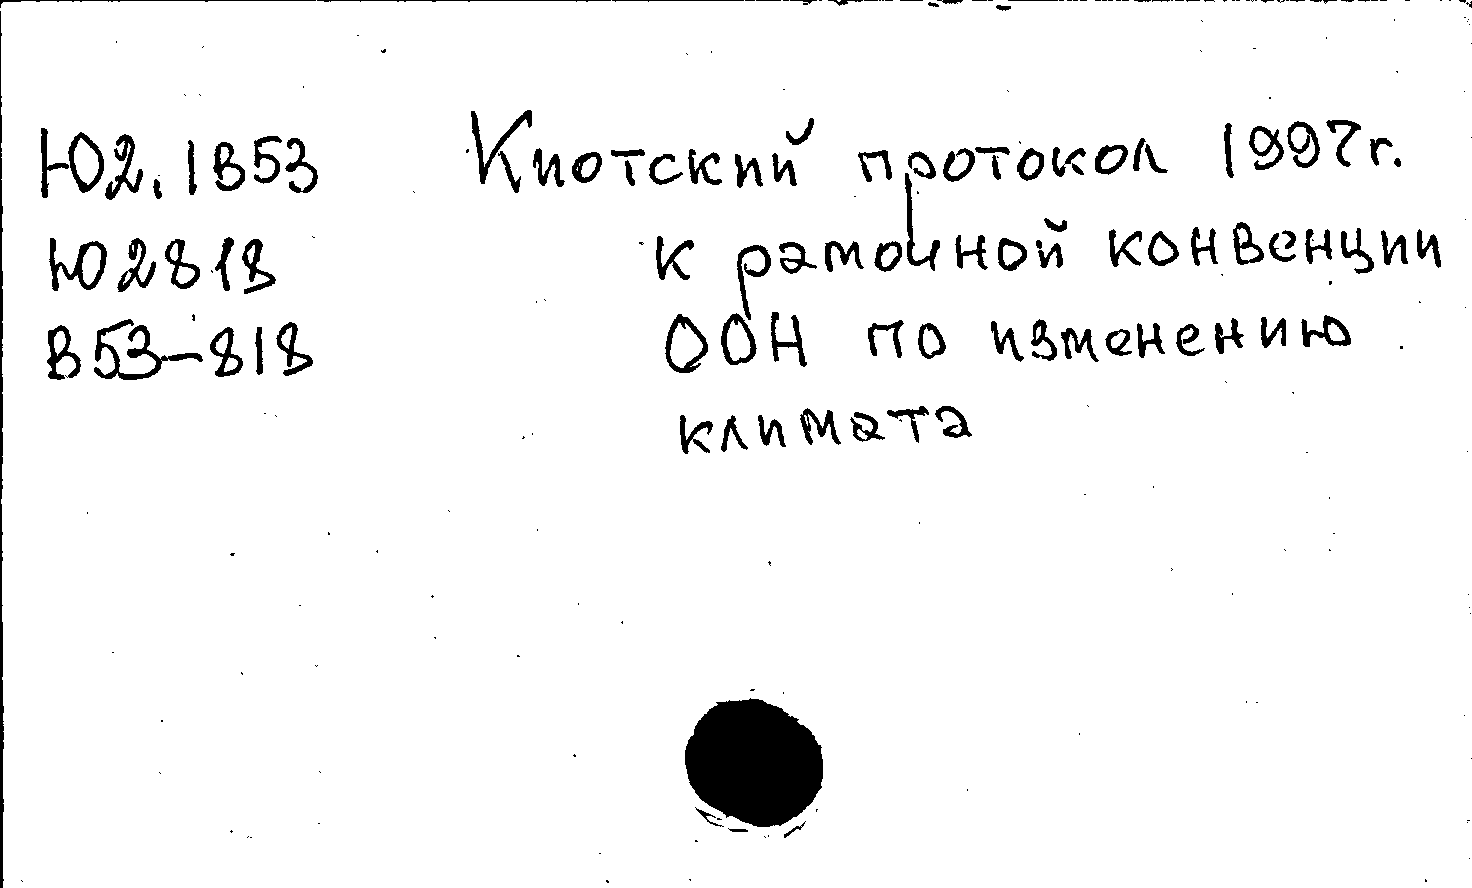 Ю2.1В53 Киотский протокол 1997г.
Ю2818 к рамочной конвенции
В53-818 ООН по изменению
климата